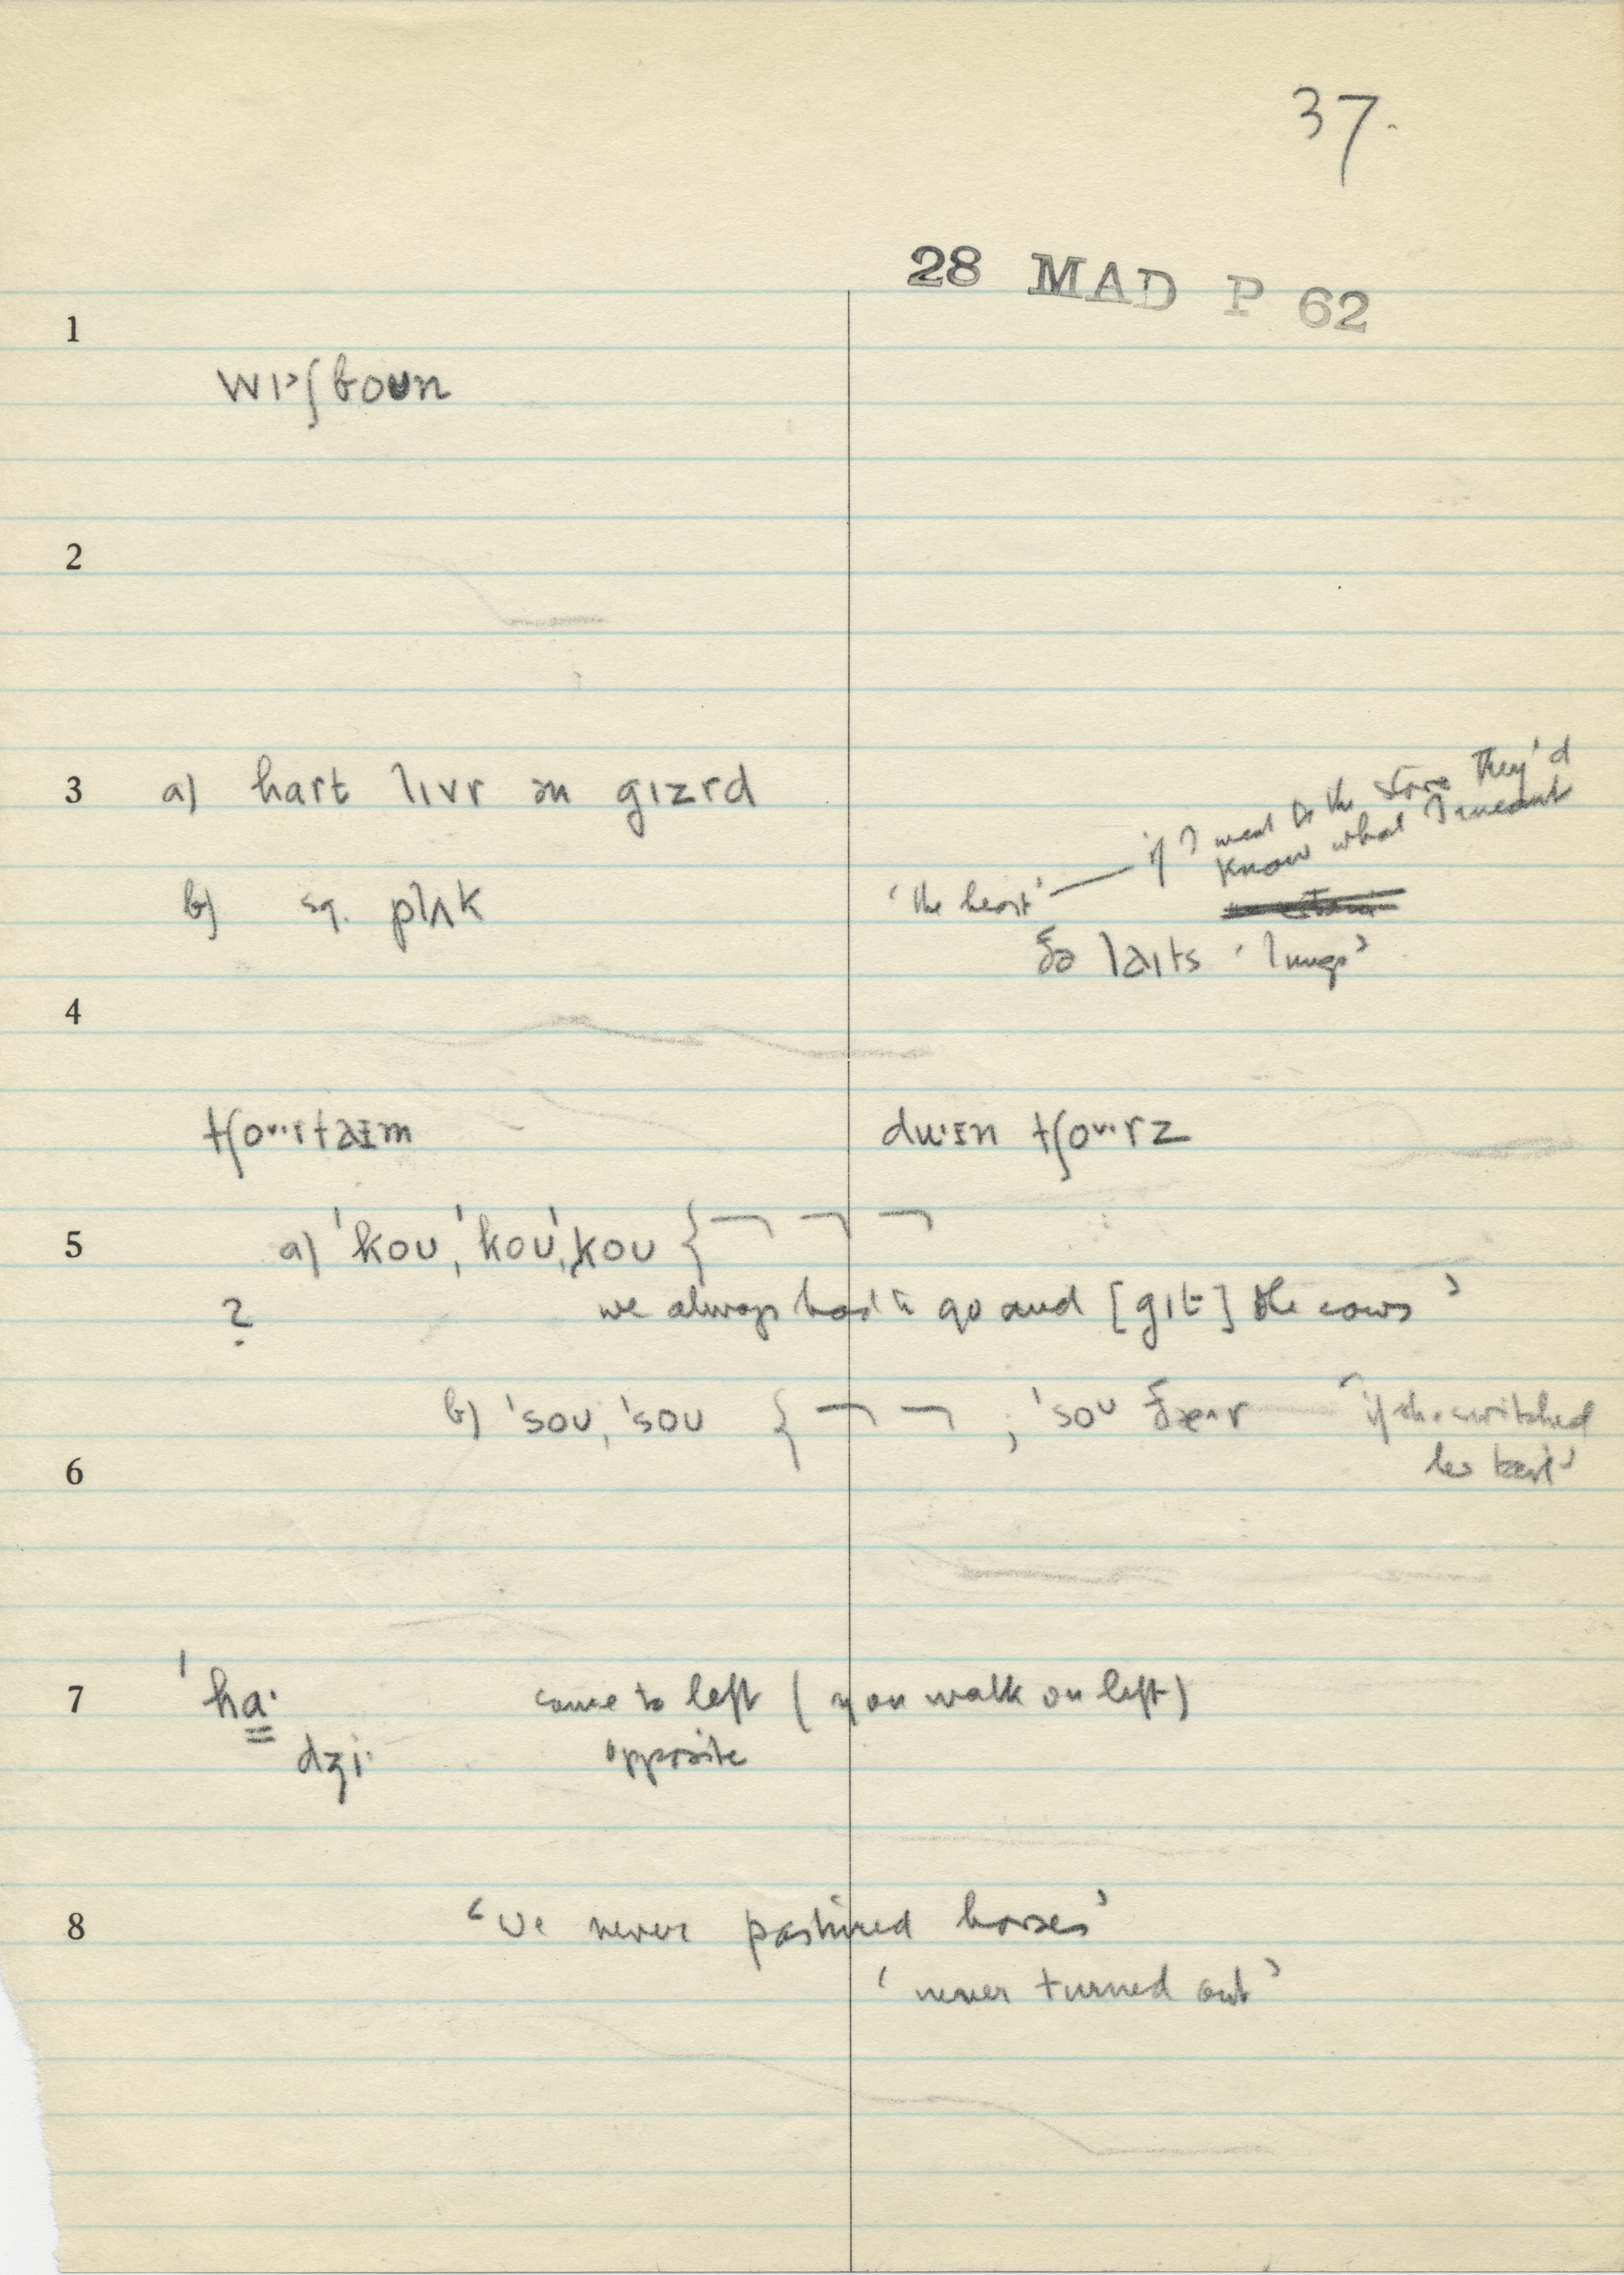 37.
28 MAD P 62
1
wɪ˃ʃboun
2
3 a) hart lɪvr ən gɪzrd
'the heart' — if I went to the store they'd
know what I meant
b) sg. plʌk
ðə laɪts 'lungs'
4
tʃoᵘ·rtaɪm duˑɪn tʃoᵘ·rz
5 a) 'koʊ, 'koʊ, 'koʊ { ¬ ¬ ¬
? we always had to go and [gɪt] the cows'
b) 'soʊ, 'soʊ { ¬ ¬ ; 'soʊ ðæ^r 'if she switched
her tail'
6
7 'ha· come to left (you walk on left)
dʒi· opposite
8 'we never pastured horses'
'never turned out'